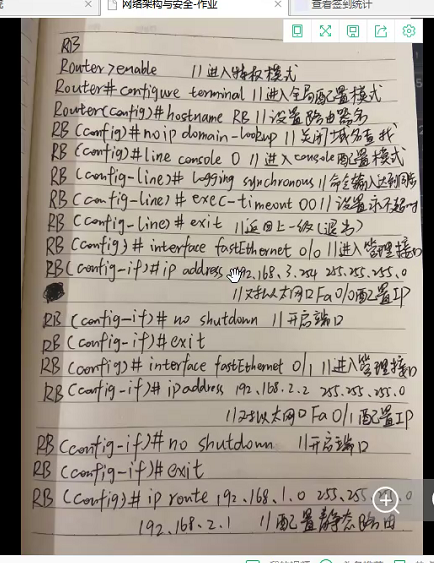 网络架构与安全-作业
查看签到统计
RB
Router>enable //进入特权模式
Router# configure terminal //进入全局配置模式
Router(config)# hostname RB //设置路由器名
RB (config)# no ip domain-lookup //关闭域名查找
RB (config)# line console 0 //进入console配置模式
RB (config-line)# logging synchronous //命令输入达到同步
RB (config-line)# exec-timeout 0 0 //设置永不超时
RB (config-line)# exit //返回上一级(退出)
RB (config)# interface fastEthernet 0/0 //进入管理接口
RB (config-if)# ip address 192.168.3.254 255.255.255.0
//对以太网口Fa0/0配置IP
RB (config-if)# no shutdown //开启端口
RB (config-if)# exit
RB (config)# interface fastEthernet 0/1 //进入管理接口
RB (config-if)# ip address 192.168.2.2 255.255.255.0
//对以太网口Fa0/1配置IP
RB (config-if)# no shutdown //开启端口
RB (config-if)# exit
RB (config)# ip route 192.168.1.0 255.255 .0
192.168.2.1 //配置静态路由